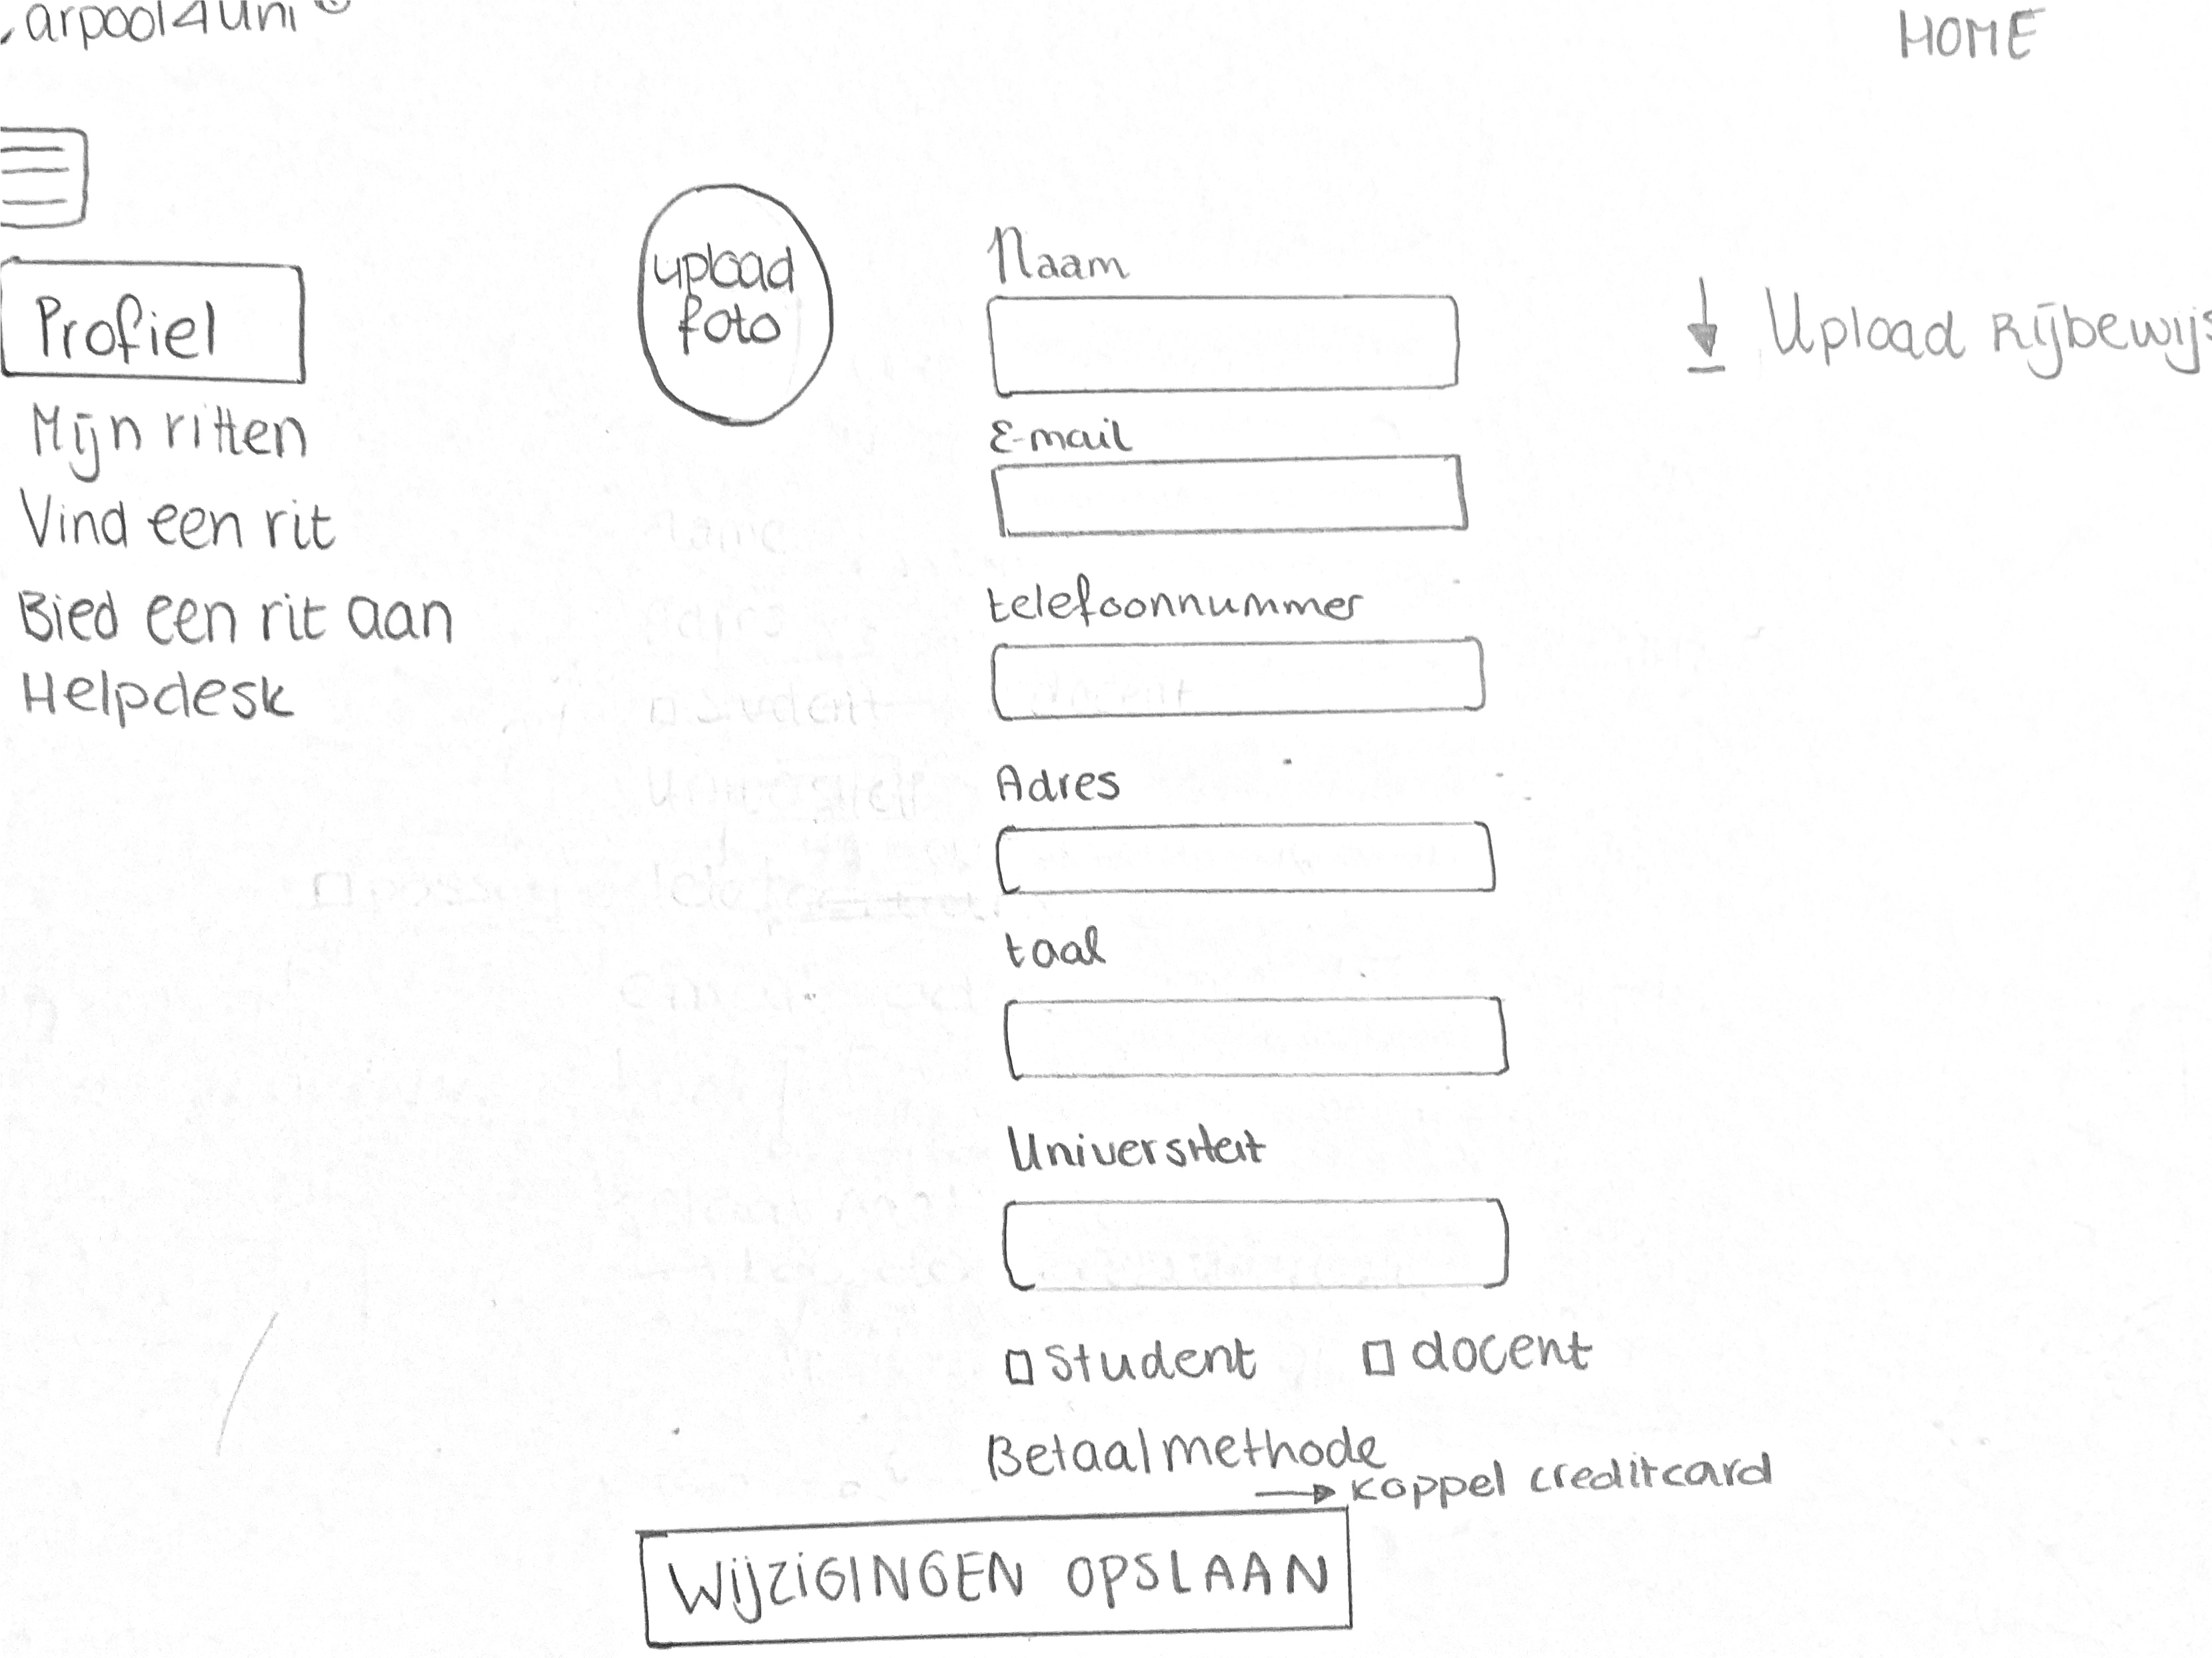 arpool4uni
HOME
Profiel
Mijn ritten
Vind een rit
Bied een rit aan
Helpdesk
upload
foto
Naam
E-mail
telefoonnummer
Adres
taal
Universiteit
student docent
Betaalmethode
→ Koppel creditcard
Upload Rijbewijs
WIJZIGINGEN OPSLAAN